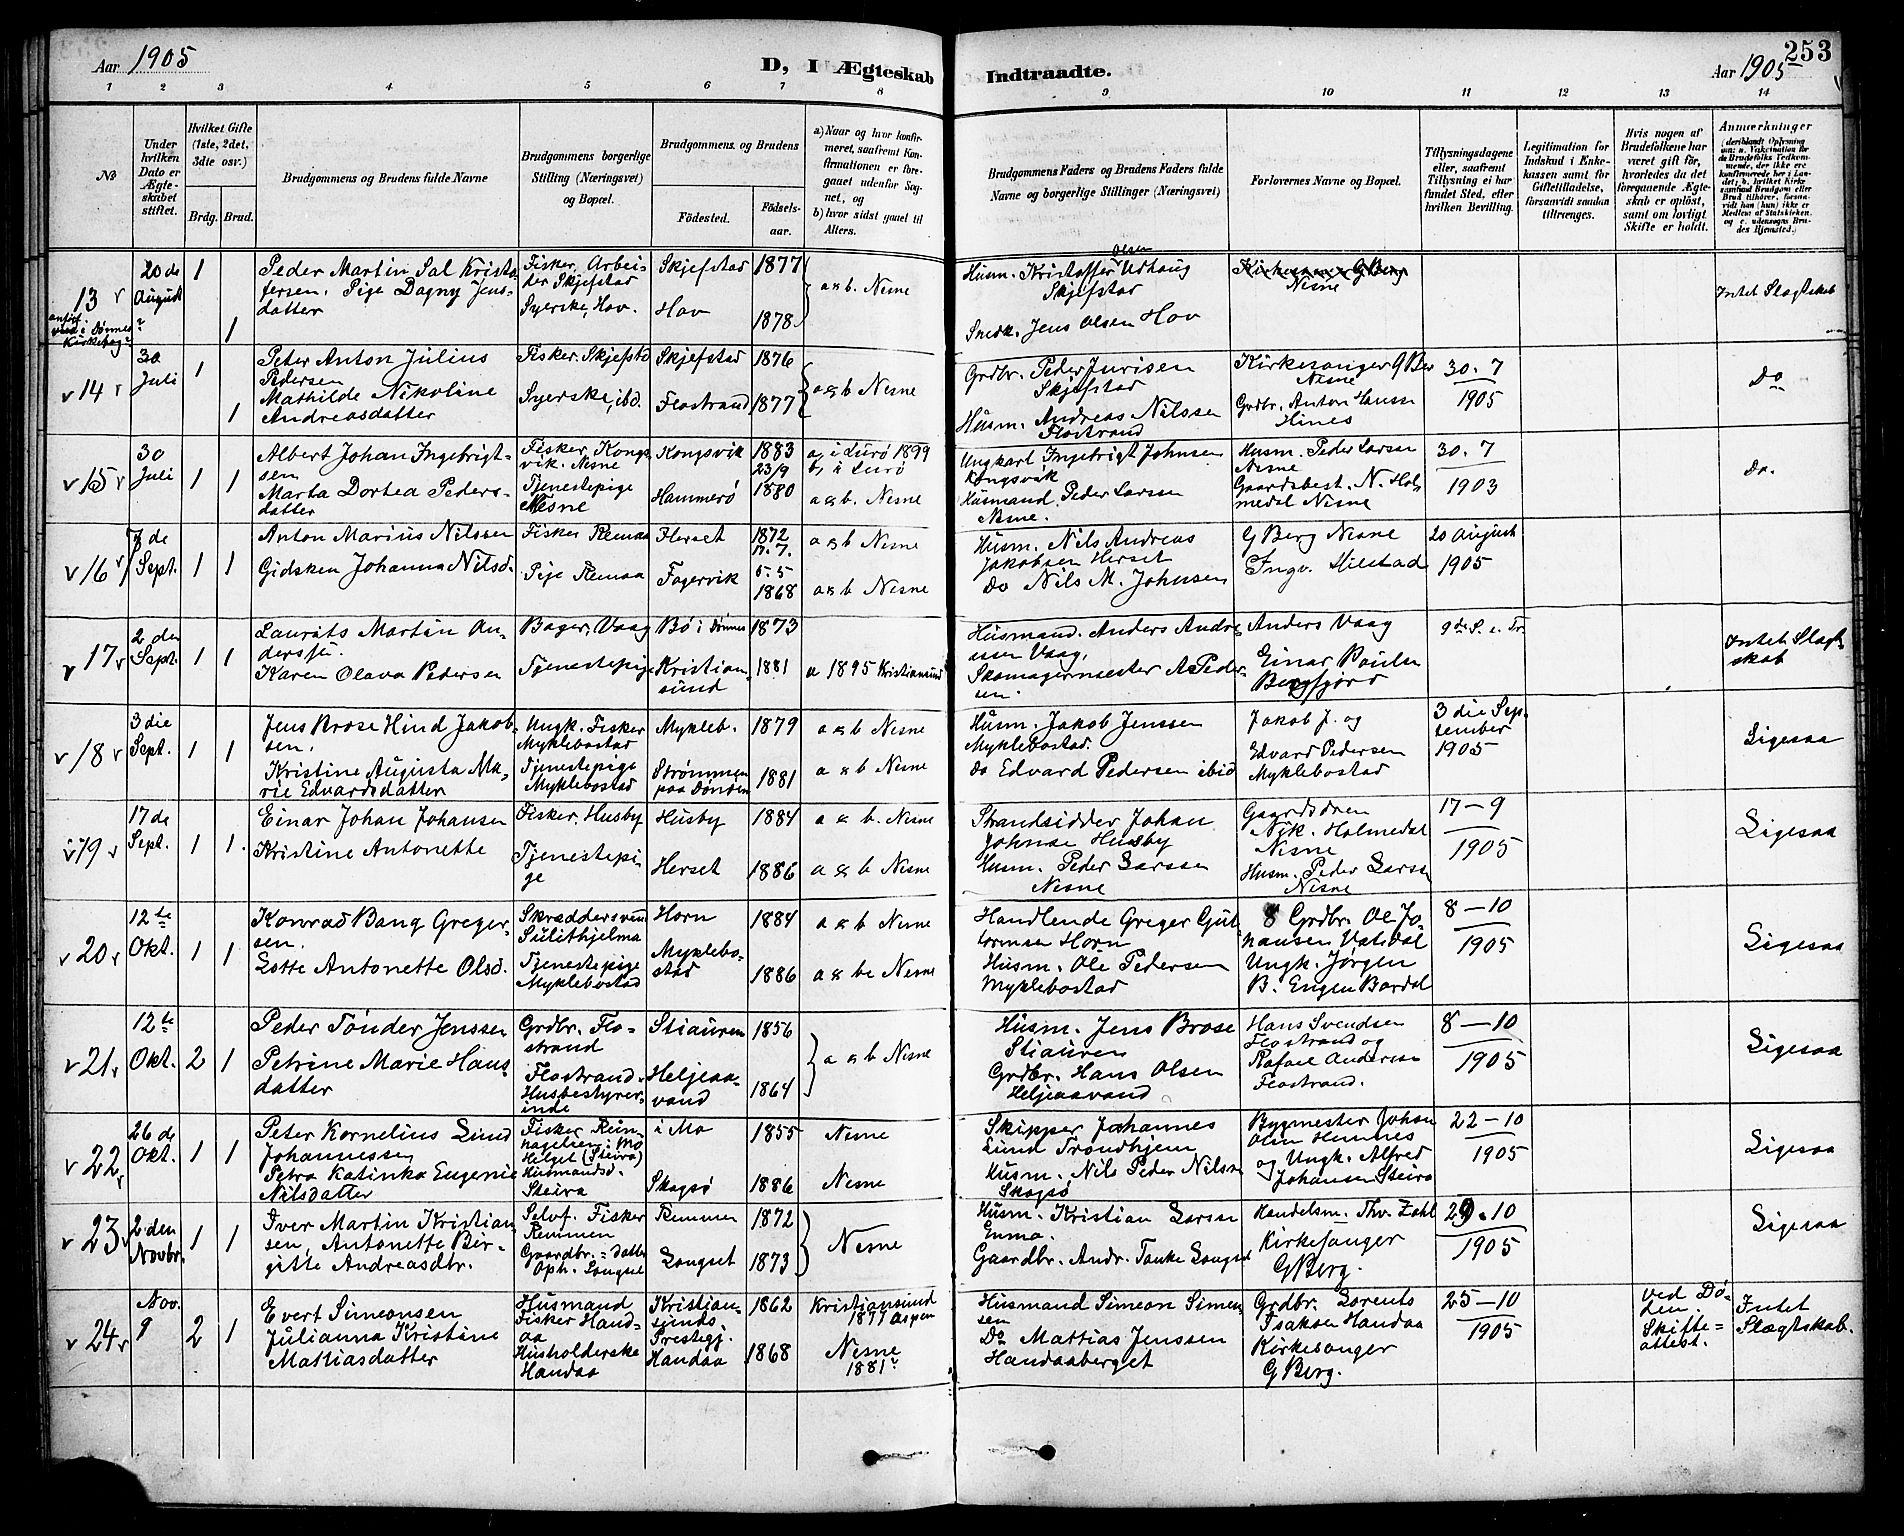 253
Aar 1905
D, I Ægteskab
Indtraadte.
Aar 1905
1 2 3 4 5 6 7 8 9 10 11 12 13 14
No
Under hvilken Dato er Ægteskabet stiftet.
Hvilket Gifte (1ste, 2det, 3die osv.)
Brdg. Brud.
Brudgommens og Brudens fulde Navne
Brudgommens borgerlige Stilling (Næringsvei) og Bopæl.
Brudgommens og Brudens
Fødested.
Fødselsaar.
a) Naar og hvor konfirmeret, saafremt Konfirmationen er foregaaet udenfor Sognet, og
b) hvor sidst gaaet til Alters.
Brudgommens Faders og Brudens Faders fulde Navne og borgerlige Stillinger (Næringsvei)
Forlovernes Navne og Bopæl.
Tillysningsdagene eller, saafremt Tillysning ei har fundet Sted, efter hvilken Bevilling.
Legitimation for Indskud i Enkekassen samt for Giftetilladelse, forsaavidt saadan tiltrænges.
Hvis nogen af Brudefolkene har været gift før, hvorledes da det foregaaende Ægteskab er opløst, samt om lovligt Skifte er holdt.
Anmærkninger
13 v
20 de August
1
1
Peder Martin Sal Kristofersen. Pige Dagny Jensdatter
Fisker, Arbeider Skjefstad
Syerske, Hov.
Skjefstad
Hov
1877
1878
a & b. Nesne
Husm. Kristoffer Olsen Udhaug Skjefstad
Snedk. Jens Olsen Hov
Kirkesanger G Berg
Nesne
Intet Slagtskab
v 14 v
30 Juli
1
1
Peter Anton Julius Pedersen
Mathilde Nikoline Andreasdatter
Fisker. Skjefstd
Syerske, ibd.
Skjefstad
Flostrand
1876
1877
a & b Nesne
Grdbr. Peder Jurisen Skjefstad
Husm. Andreas Nilssen Flostrand
Kirkesanger G Ber Nesne
Grdbr. Anton Hanssn Hines
30. 7
1905
Do
v 15 v
30 Juli
1 1
Albert Johan Ingebrigtsen
Marta Dortea Pedersdatter
Fisker, Kongsvik. Nesne
Tjenestepige Nesne
Kongsvik
Hammerø
1883
23/9
1880
a, i Lurø 1899
b, i Lurø
a & b. Nesne
Ungkarl Ingebrigt Johnsen Kongsvik
Husmand Peder Larssen Nesne.
Husm. Peder Larssen Nesne
Gaardsbest. N. Holmedal Nesne
30. 7
1903
Do.
v 16 v
3 de Sept.
1 1
Anton Marius Nilssen
Gidsken Johanna Nilsd.
Fisker Remaa
Pige Remaa
Herset
Fagervik
1872
17. 7.
5. 5
1868
a & b Nesne
a & b Nesne
Husm. Nils Andreas Jakobsen Herset
Do Nils M. Johnsen
G Berg Nesne
Ingv. Hilstad
20 August
1905
v 17 v
2 den Sept.
1 1
Laurits Martin Anderssen.
Karen Olava Pedersen
Bager, Vaag
Tjenestepige
Bø i Dønnes
Kristiansund
1873
1881
a 1895 Kristiansund
Husmand. Anders Andreassen Vaag,
Skomagermester A Pedersen.
Anders Vaag
Einar Poulsen Bergfjord
9de S. e. Tr.
Intet Slagtskab
v 18 v
3 die Sept.
1 1
Jens Brose Hind Jakobsen.
Kristine Augusta Marie Edvardsdatter
Ungk. Fisker Myklebostad
Tjenestepige Myklebostad
Mykleb.
Strømmen paa Dønden
1879
1881
a & b Nesne
a & b Nesne
Husm. Jakob Jenssen Myklebostad.
Do Edvard Pedersen ibid
Jakob J. og
Edvard Pedersen Myklebostad
3 die September 1905
Ligesaa
v 19 v
17 de Sept.
1 1.
Einar Johan Johansen
Kristine Antonette
Fisker, Husby
Tjenestepige
Husby
Herset
1884
1886
a & b. Nesne
a & b Nesne
Strandsidder Johan Johnse Husby
Husm. Peder Larssen Nesne
Gaardsdren Nik. Holmedal Nesne
Husm. Peder Larssen Nesne
17 – 9
1905
Ligesaa
v 20 v
12te Okt.
1 1
Konrad Bang Gregersen.
Lotte Antonette Olsd.
Skræddersvend Sulithjelma
Tjenestepige Myklebostad
Horn
Myklebostad
1884
1886
a & b Nesne
a & be Nesne
Handlende Greger Guttormsen Horn
Husm. Ole Pedersen Myklebostad
Grdbr. Ole Johansen Valsdal
Ungk. Jørgen B. Engen Bardal
8 – 10
1905
Ligesaa
v 21 v
12te Okt.
2 1
Peder Tønder Jenssen
Petrine Marie Hansdatter
Grdbr. Flostrand
Flostrand. Husbestyrerinde
Stiauren
Heljeaavand
1856
1864
a & b Nesne
Husm. Jens Brose Stiauren
Grdbr. Hans Olsen Heljeaavand
Hans Svendsen Flostrand og
Rafael Andersen Flostrand.
8 – 10
1905
Ligesaa
v 22 v
26 de Okt.
1 1
Peter Kornelius Lund Johannessen
Petra Katinka Eugenie Nilsdatter
Husmandsd. Steira
i Mo
Skogsø
1855
1886
Nesne
Nesne
Skipper Johannes Lund Trondhjem
Husm. Nils Peder Nilsen Skogsø
Bygmester Johan Olsn Hemnes
og Ungk. Alfred Johansen Steiro
22 – 10
1905
Ligesaa
v 23 v
2 den Novbr.
1 1
Iver Martin Kristiansen, Antonette Birgitte Andreasdbr.
Selvf. Fisker Remmen
Gaardbr. = Datter Oph. Longset
Remmen
Longset
1872
1873
Nesne
Husm. Kristian Larssn Enmo.
Gaardbr. Andr. Tanke Longset
Handelsm. Thv. Zahl
Kirkesanger G Berg.
29. 10
1905
Ligesaa
v 24 v
Nov. 9
2 1
Evert Simeonsen
Julianna Kristine Mattiasdatter
Husmand Fisker Handaa
Husholderske Handaa
Kristiansunds Prestegj.
Handaa
1862
1868
Kristiansund 1877
Nesne 1881
Husmand Simeon Simensen
Do Mattias Jenssen Handaaberget
Grdbr. Lorents Isaksen Handaa
Kirkesanger G Berg.
25 – 10
1905
ved Døden. Skifteattest.
Intet Slægtskab.